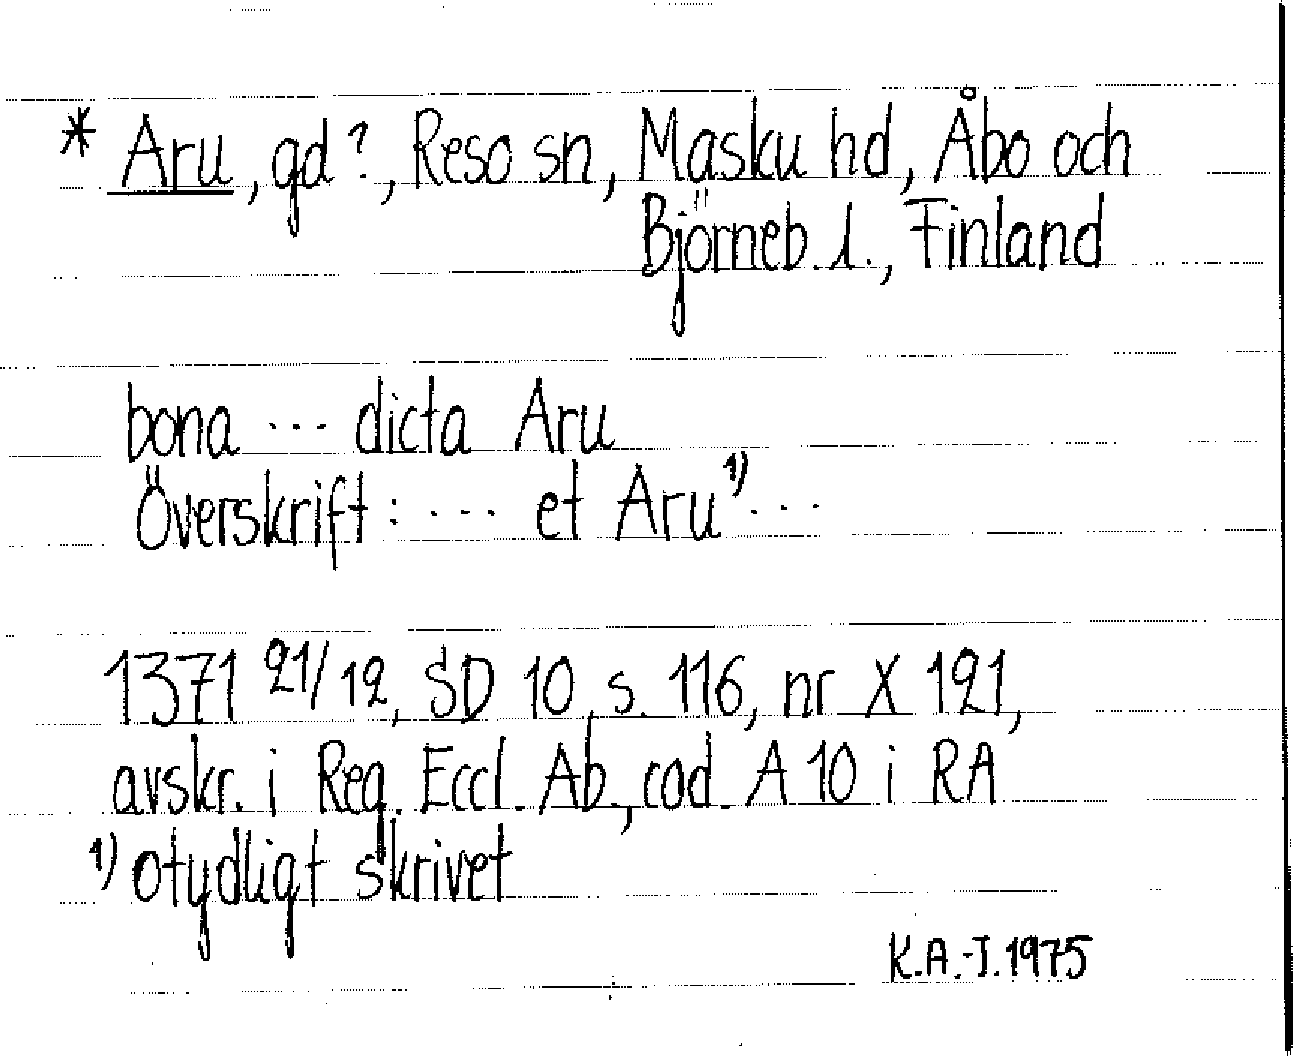 * Aru, gd?, Reso sn, Masku hd, Åbo och
Björneb. l., Finland
bona ... dicta Aru
Överskrift: .... et Aru¹⁾...
1371 21/12, SD 10, s. 116, nr X 121,
avskr. i Reg. Eccl. Ab., cod. A 10 i RA
¹⁾ otydligt skrivet
K.A.-J. 1975